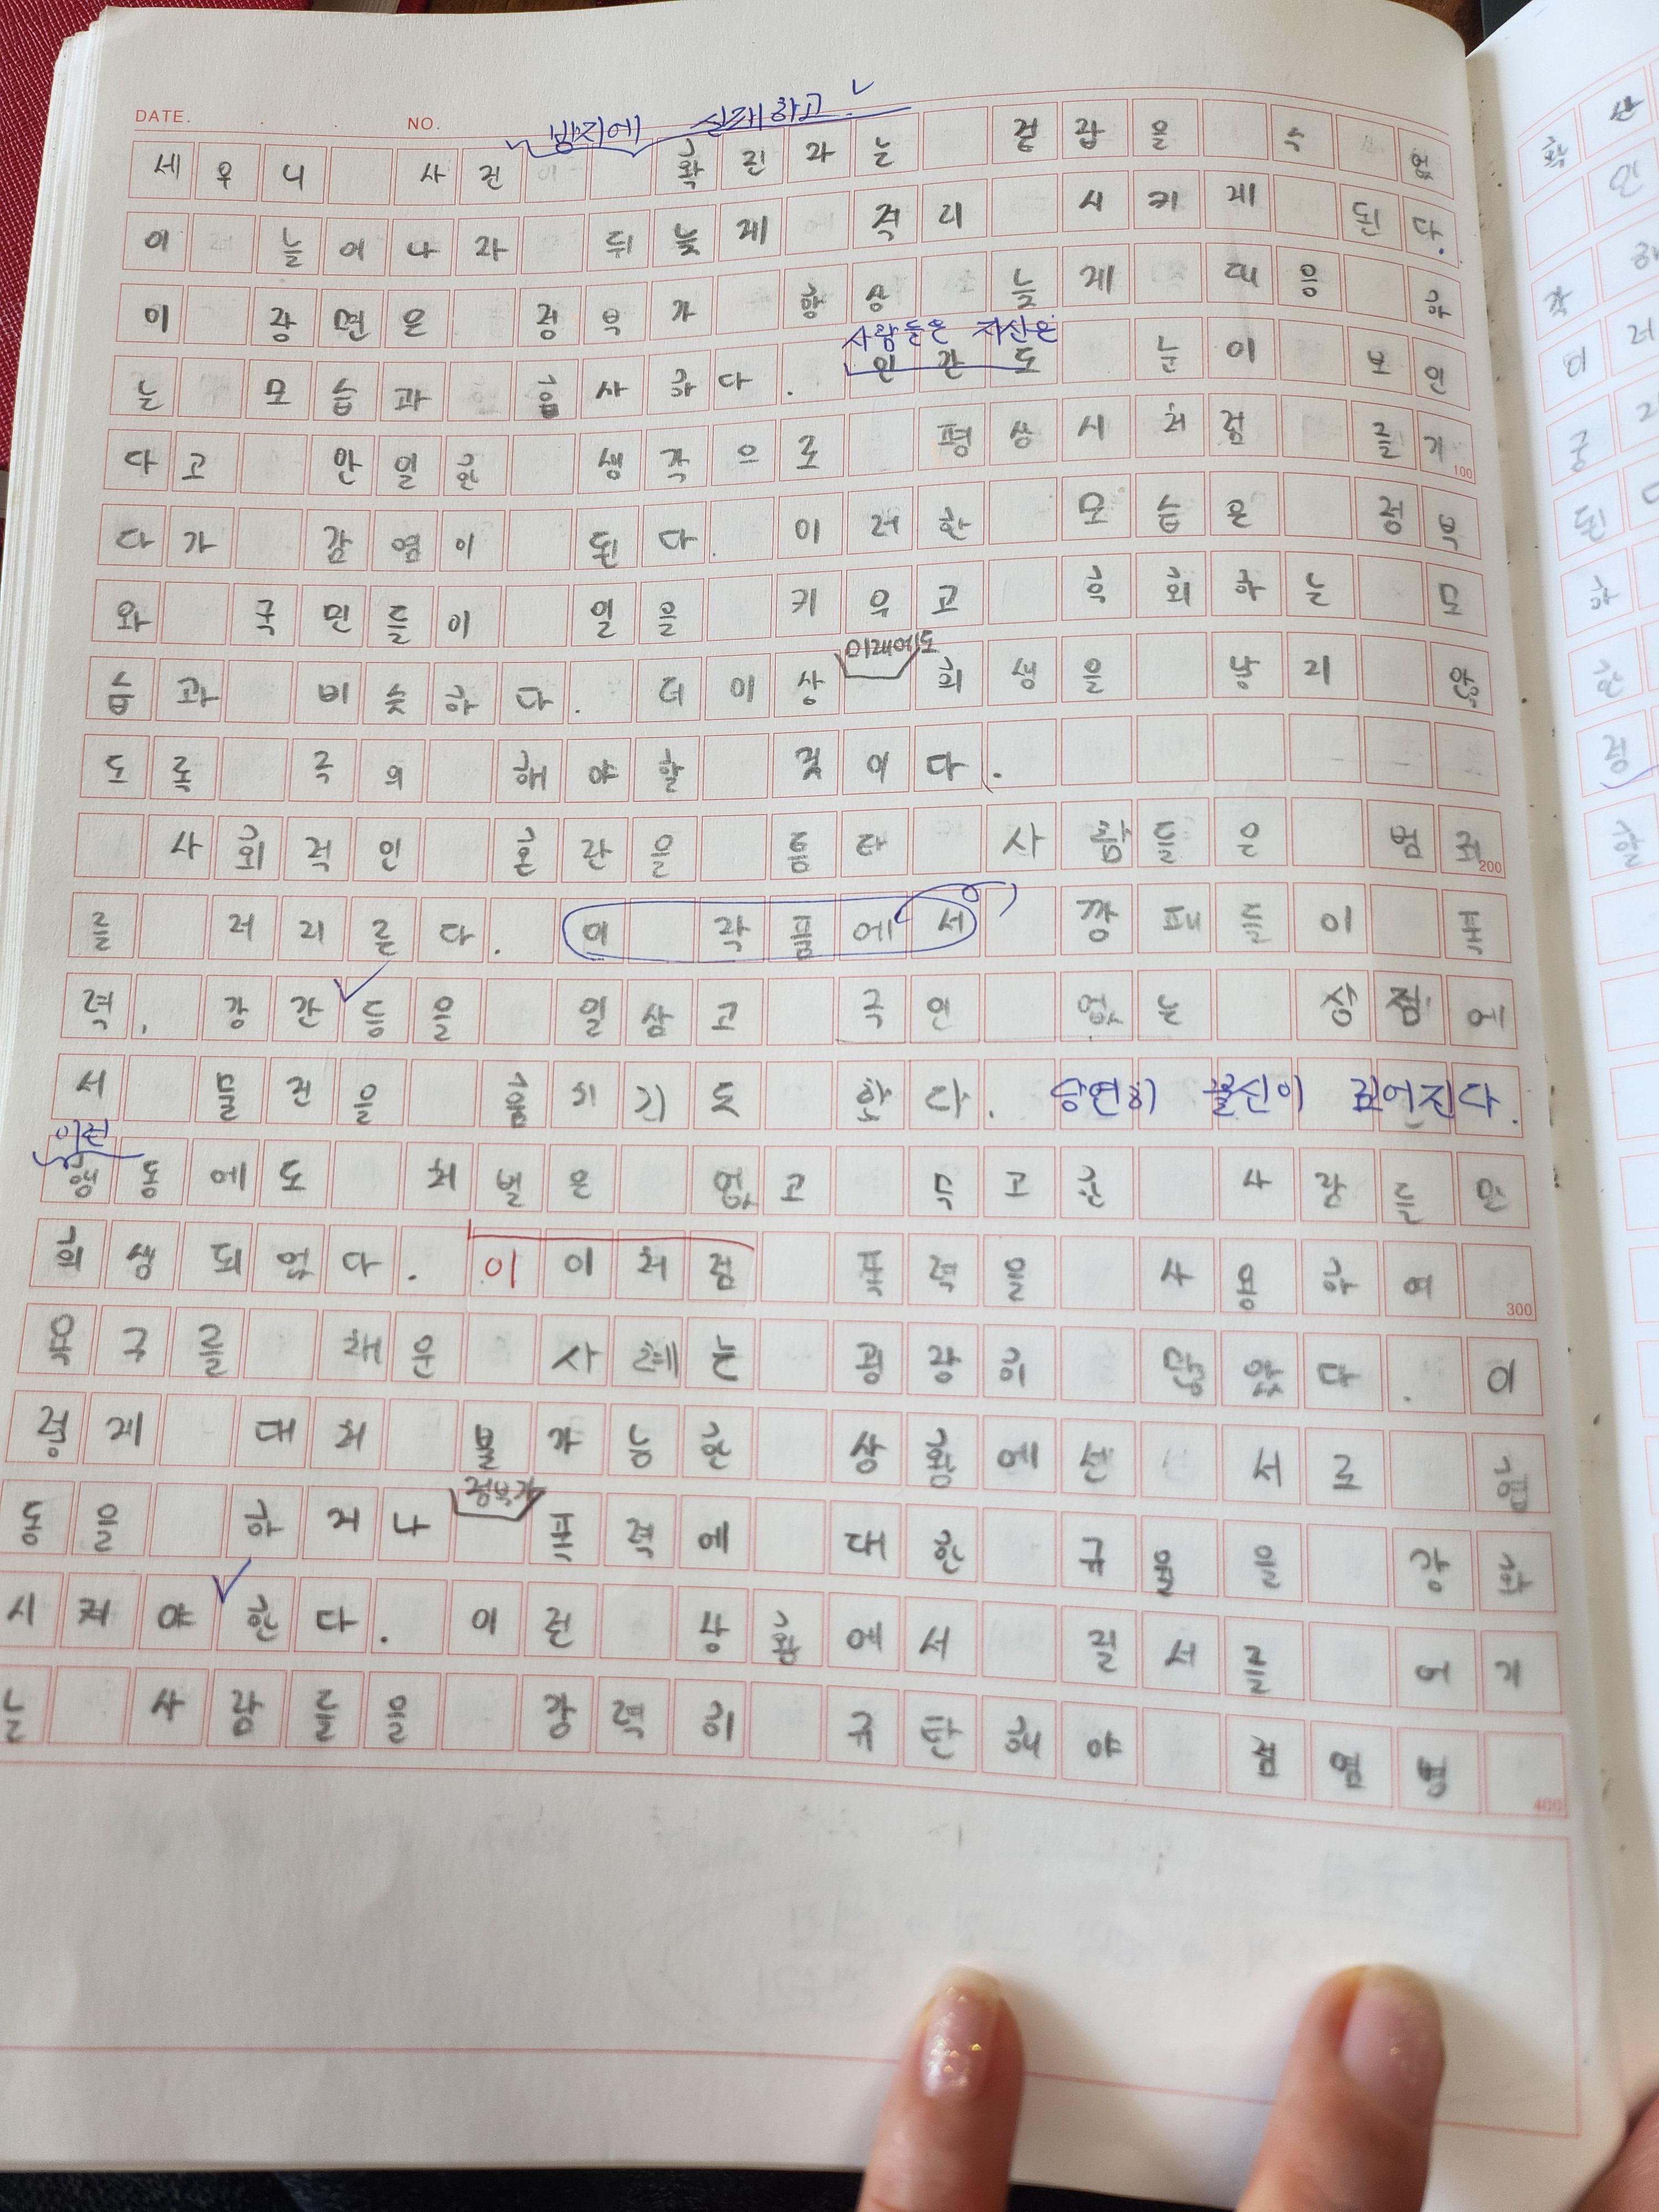 DATE. NO.
방지에 실패하고
세우니 사전 확진라는 겉잡을 수 없
이 늘어나라 뒤늦게 격리 시키게 된다.
이 장면은 정부가 항상 늦게 대응하
사람들은 자산은
는 모습과 흡사하다. 인간도 눈이 보인
다고 안일한 생각으로 평상시처럼 즐기
100
다가 감염이 된다. 이러한 모습은 정부
와 국민들이 일을 키우고 후회하는 모
미래에도
습과 비슷하다. 더이상 희생을 낳지 않
도록 주의 해야할 것이다.
사회적인 혼란을 틈타 사람들은 범죄
200
를 저지른다. 이 각품에서 깡패들이 폭
력, 강간등을 일삼고 주인 없는 상점에
서 물건을 훔치기도 한다. 당연히 불신이 깊어진다.
이런
행동에도 처벌은 없고 무고한 사람들만
희생되었다. 이이처럼 폭력을 사용하여
300
욕구를 채운 사례는 굉장히 많았다. 이
렇게 대처 불가능한 상황에선 서로 협
정부가
동을 하거나 폭력에 대한 규율을 강화
시켜야 한다. 이런 상황에서 질서를 어기
는 사람들을 강력히 규탄해야 전염병
400